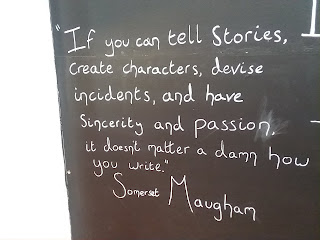 "If you can tell Stories,
Create characters, devise
incidents, and have
Sincerity and passion,
it doesnt matter a damn how
you write."
Somerset Maugham